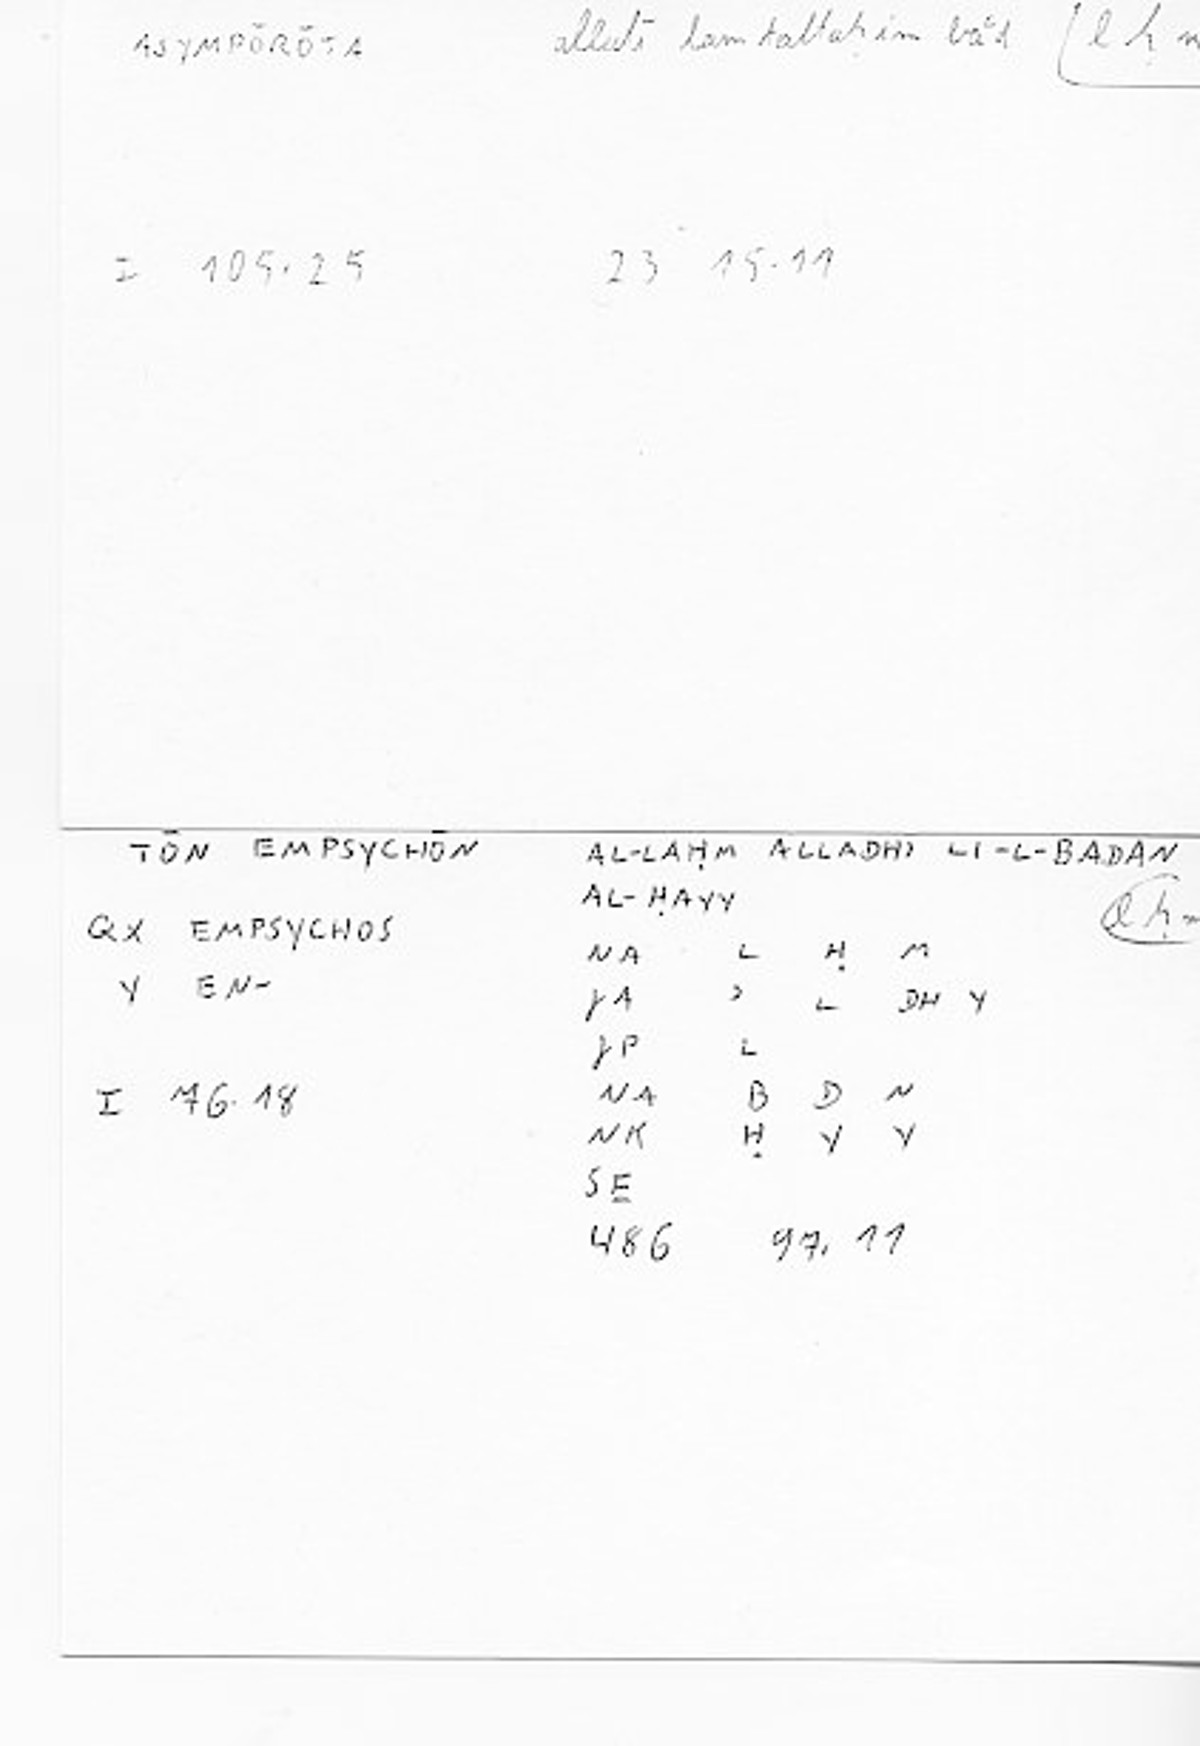 ASYMPŌRŌTA allatī lam taltaḥim baʿd (l ḥ m
I 105.25 23 15.11
TŌN EMPSYCHŌN AL-LAḤM ALLADHĪ LI-L-BADAN
AL-ḤAYY
QX EMPSYCHOS l ḥ m
NA L Ḥ M
Y EN-
JA ʾ L DH Y
JP L
I 76.18 NA B D N
NK Ḥ Y Y
SE
486 97.11